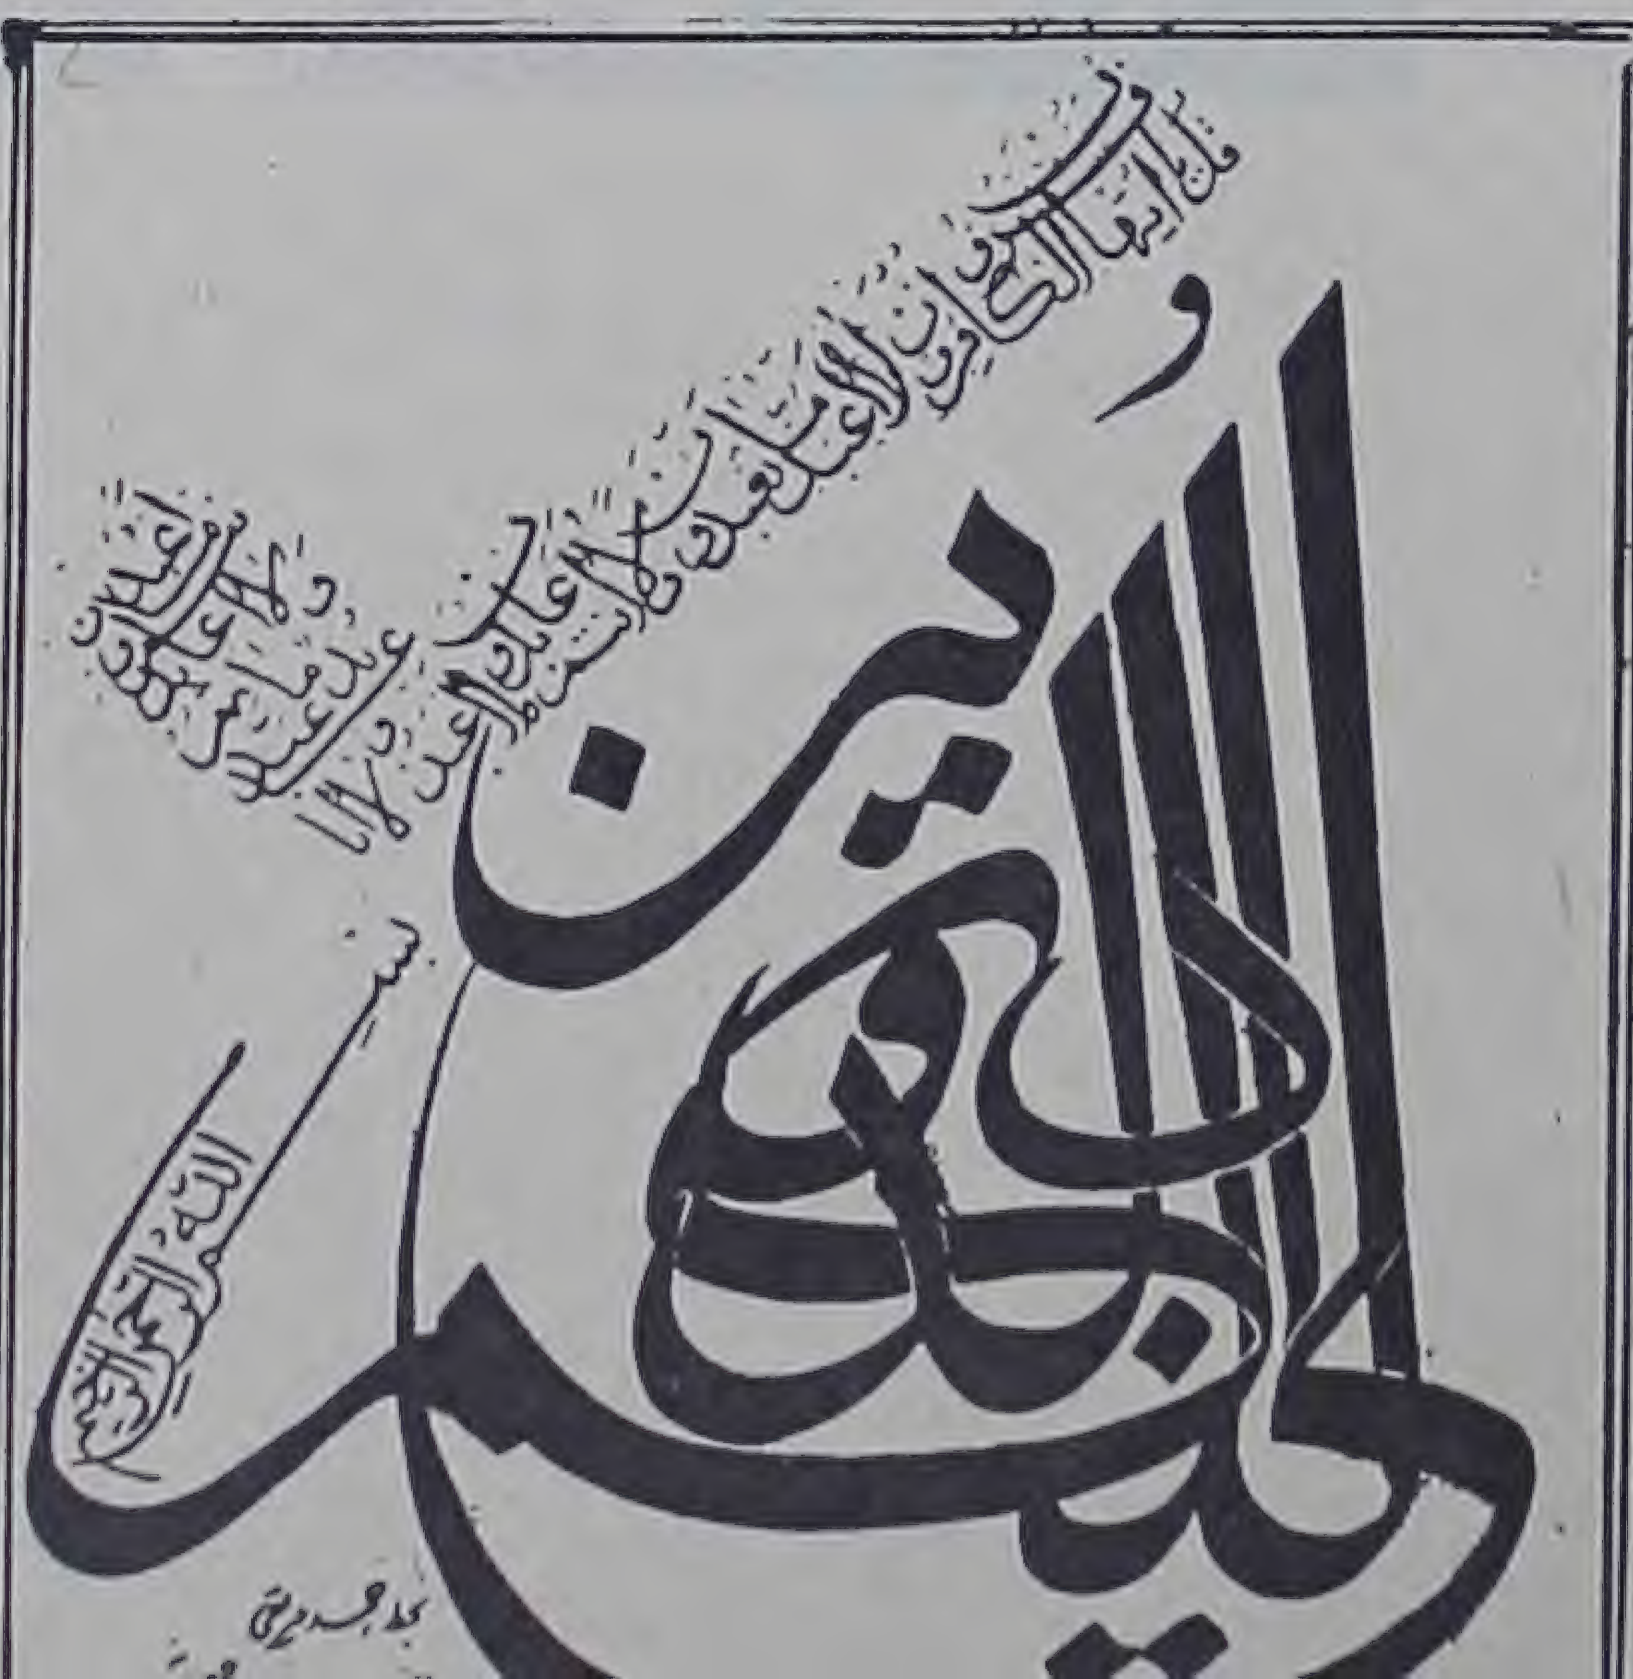 بسم الله الرحمن الرحيم
قل يا أيها الكافرون لا أعبد ما تعبدون
ولا أنتم عابدون ما أعبد ولا أنا
عابد ما عبدتم
ولا أنتم عابدون ما أعبد
لكم دينكم ولي دين